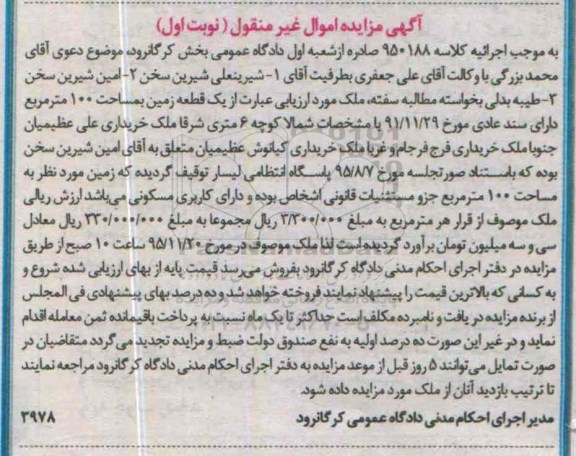 آگهی مزایده اموال غیر منقول (نوبت اول)
به موجب اجرائیه کلاسه ۹۵۰۱۸۸ صادره ازشعبه اول دادگاه عمومی بخش کرگانرود، موضوع دعوی آقای
محمد بزرگی با وکالت آقای علی جعفری بطرفیت آقای ۱-شیرینعلی شیرین سخن ۲-امین شیرین سخن
۳-طیبه بدلی بخواسته مطالبه سفته، ملک مورد ارزیابی عبارت از یک قطعه زمین بمساحت ۱۰۰ مترمربع
دارای سند عادی مورخ ۹۱/۱۱/۲۹ با مشخصات شمالا کوچه ۶ متری شرقا ملک خریداری علی عظیمیان
جنوبا ملک خریداری فرج فرجام و غربا ملک خریداری کیانوش عظیمیان متعلق به آقای امین شیرین سخن
بوده که باستناد صورتجلسه مورخ ۹۵/۸/۷ پاسگاه انتظامی لیسار توقیف گردیده که زمین مورد نظر به
مساحت ۱۰۰ مترمربع جزو مستثنیات قانونی اشخاص بوده و دارای کاربری مسکونی می‌باشد ارزش ریالی
ملک موصوف از قرار هر مترمربع به مبلغ ۳/۳۰۰/۰۰۰ ریال مجموعا به مبلغ ۳۳۰/۰۰۰/۰۰۰ ریال معادل
سی و سه میلیون تومان برآورد گردیده است لذا ملک موصوف در مورخ ۹۵/۱۱/۲۰ ساعت ۱۰ صبح از طریق
مزایده در دفتر اجرای احکام مدنی دادگاه کرگانرود بفروش می‌رسد قیمت پایه از بهای ارزیابی شده شروع و
به کسانی که بالاترین قیمت را پیشنهاد نمایند فروخته خواهد شد و ده درصد بهای پیشنهادی فی المجلس
از برنده مزایده دریافت و نامبرده مکلف است حداکثر تا یک ماه نسبت به پرداخت باقیمانده ثمن معامله اقدام
نماید و در غیر این صورت ده درصد اولیه به نفع صندوق دولت ضبط و مزایده تجدید می‌گردد متقاضیان در
صورت تمایل می‌توانند ۵ روز قبل از موعد مزایده به دفتر اجرای احکام مدنی دادگاه کرگانرود مراجعه نمایند
تا ترتیب بازدید آنان از ملک مورد مزایده داده شود.
مدیر اجرای احکام مدنی دادگاه عمومی کرگانرود ۳۹۷۸